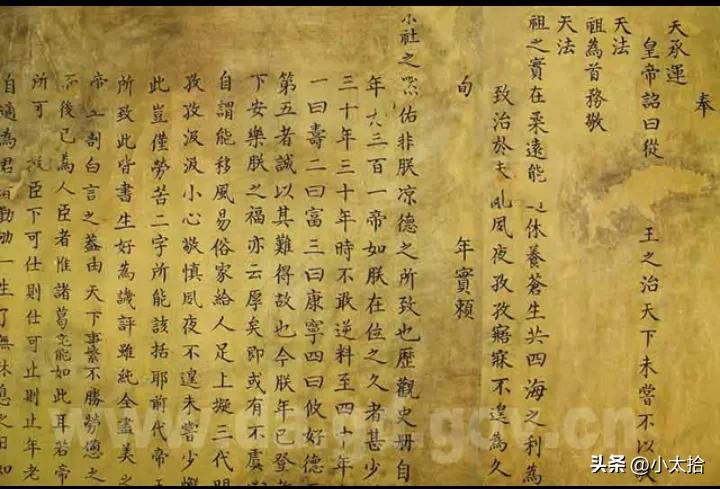 奉
天承運
皇帝詔曰從 王之治天下未嘗不以
天法
祖為首務敬
天法
祖之實在柔遠能 休養蒼生共四海之利為
致治於 夙夜孜孜寤寐不遑為久
旬 年實賴
社之 佑非朕凉德之所致也歷觀史册自
年 六 三百一帝如朕在位之久者甚少
三十年三十年時不敢逆料至四十年
一曰壽二曰富三曰康寧四曰攸好德
第五者誠以其難得故也今朕年已登
下安樂朕之福亦云厚矣即或有不虞
自謂能移風易俗家給人足上擬三代明
孜孜汲汲小心敬慎夙夜不遑未嘗少懈
此豈僅勞苦二字所能該括耶前代帝王
所致此皆書生好為譏評雖純全盡美之
帝王剖白言之蓋由天下事繁不勝勞憊之
而後已為人臣者惟諸葛亮能如此耳若帝
所可 臣下可仕則仕可止則止年老
自適為君 勤劬一生了無休息之日如
头条 @小太拾